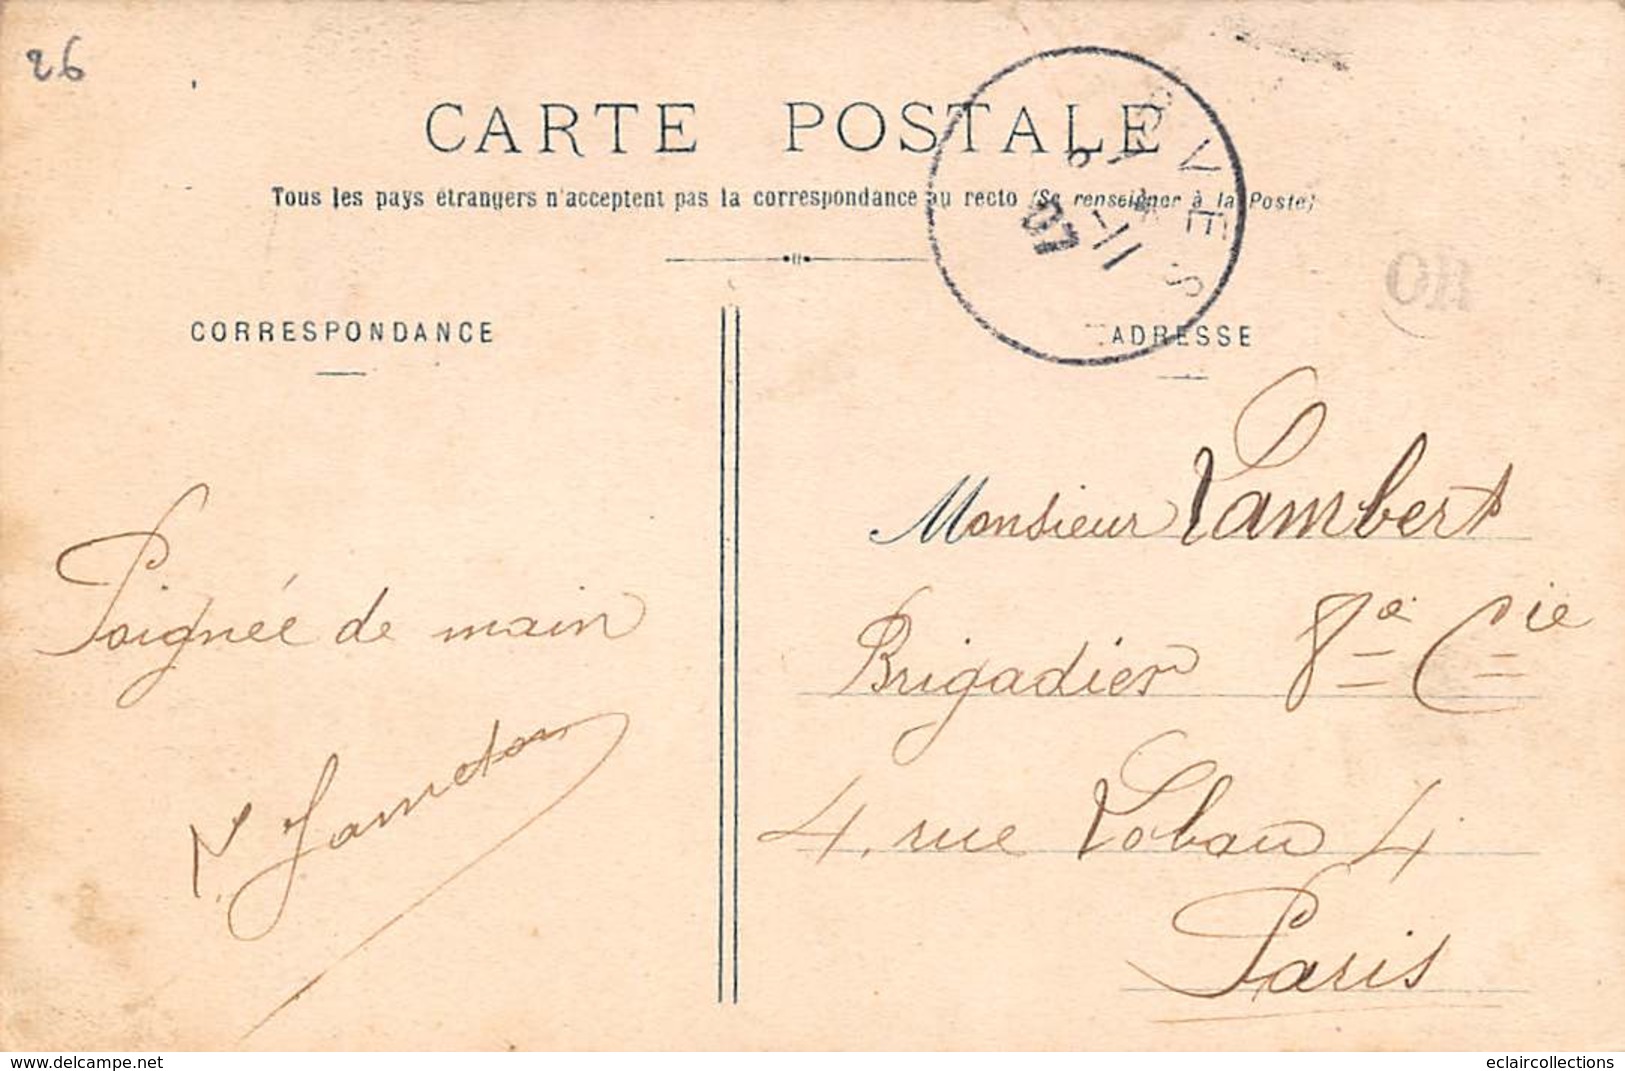 26
CARTE POSTALE
Tous les pays étrangers n'acceptent pas la correspondance au recto (Se renseigner à la Poste)
07
11
VES
OR
CORRESPONDANCE
ADRESSE
Poignée de main
Monsieur Lambert
Brigadier 8e Cie
4, rue Lobau 4
Paris
www.delcampe.net
eclaircollections